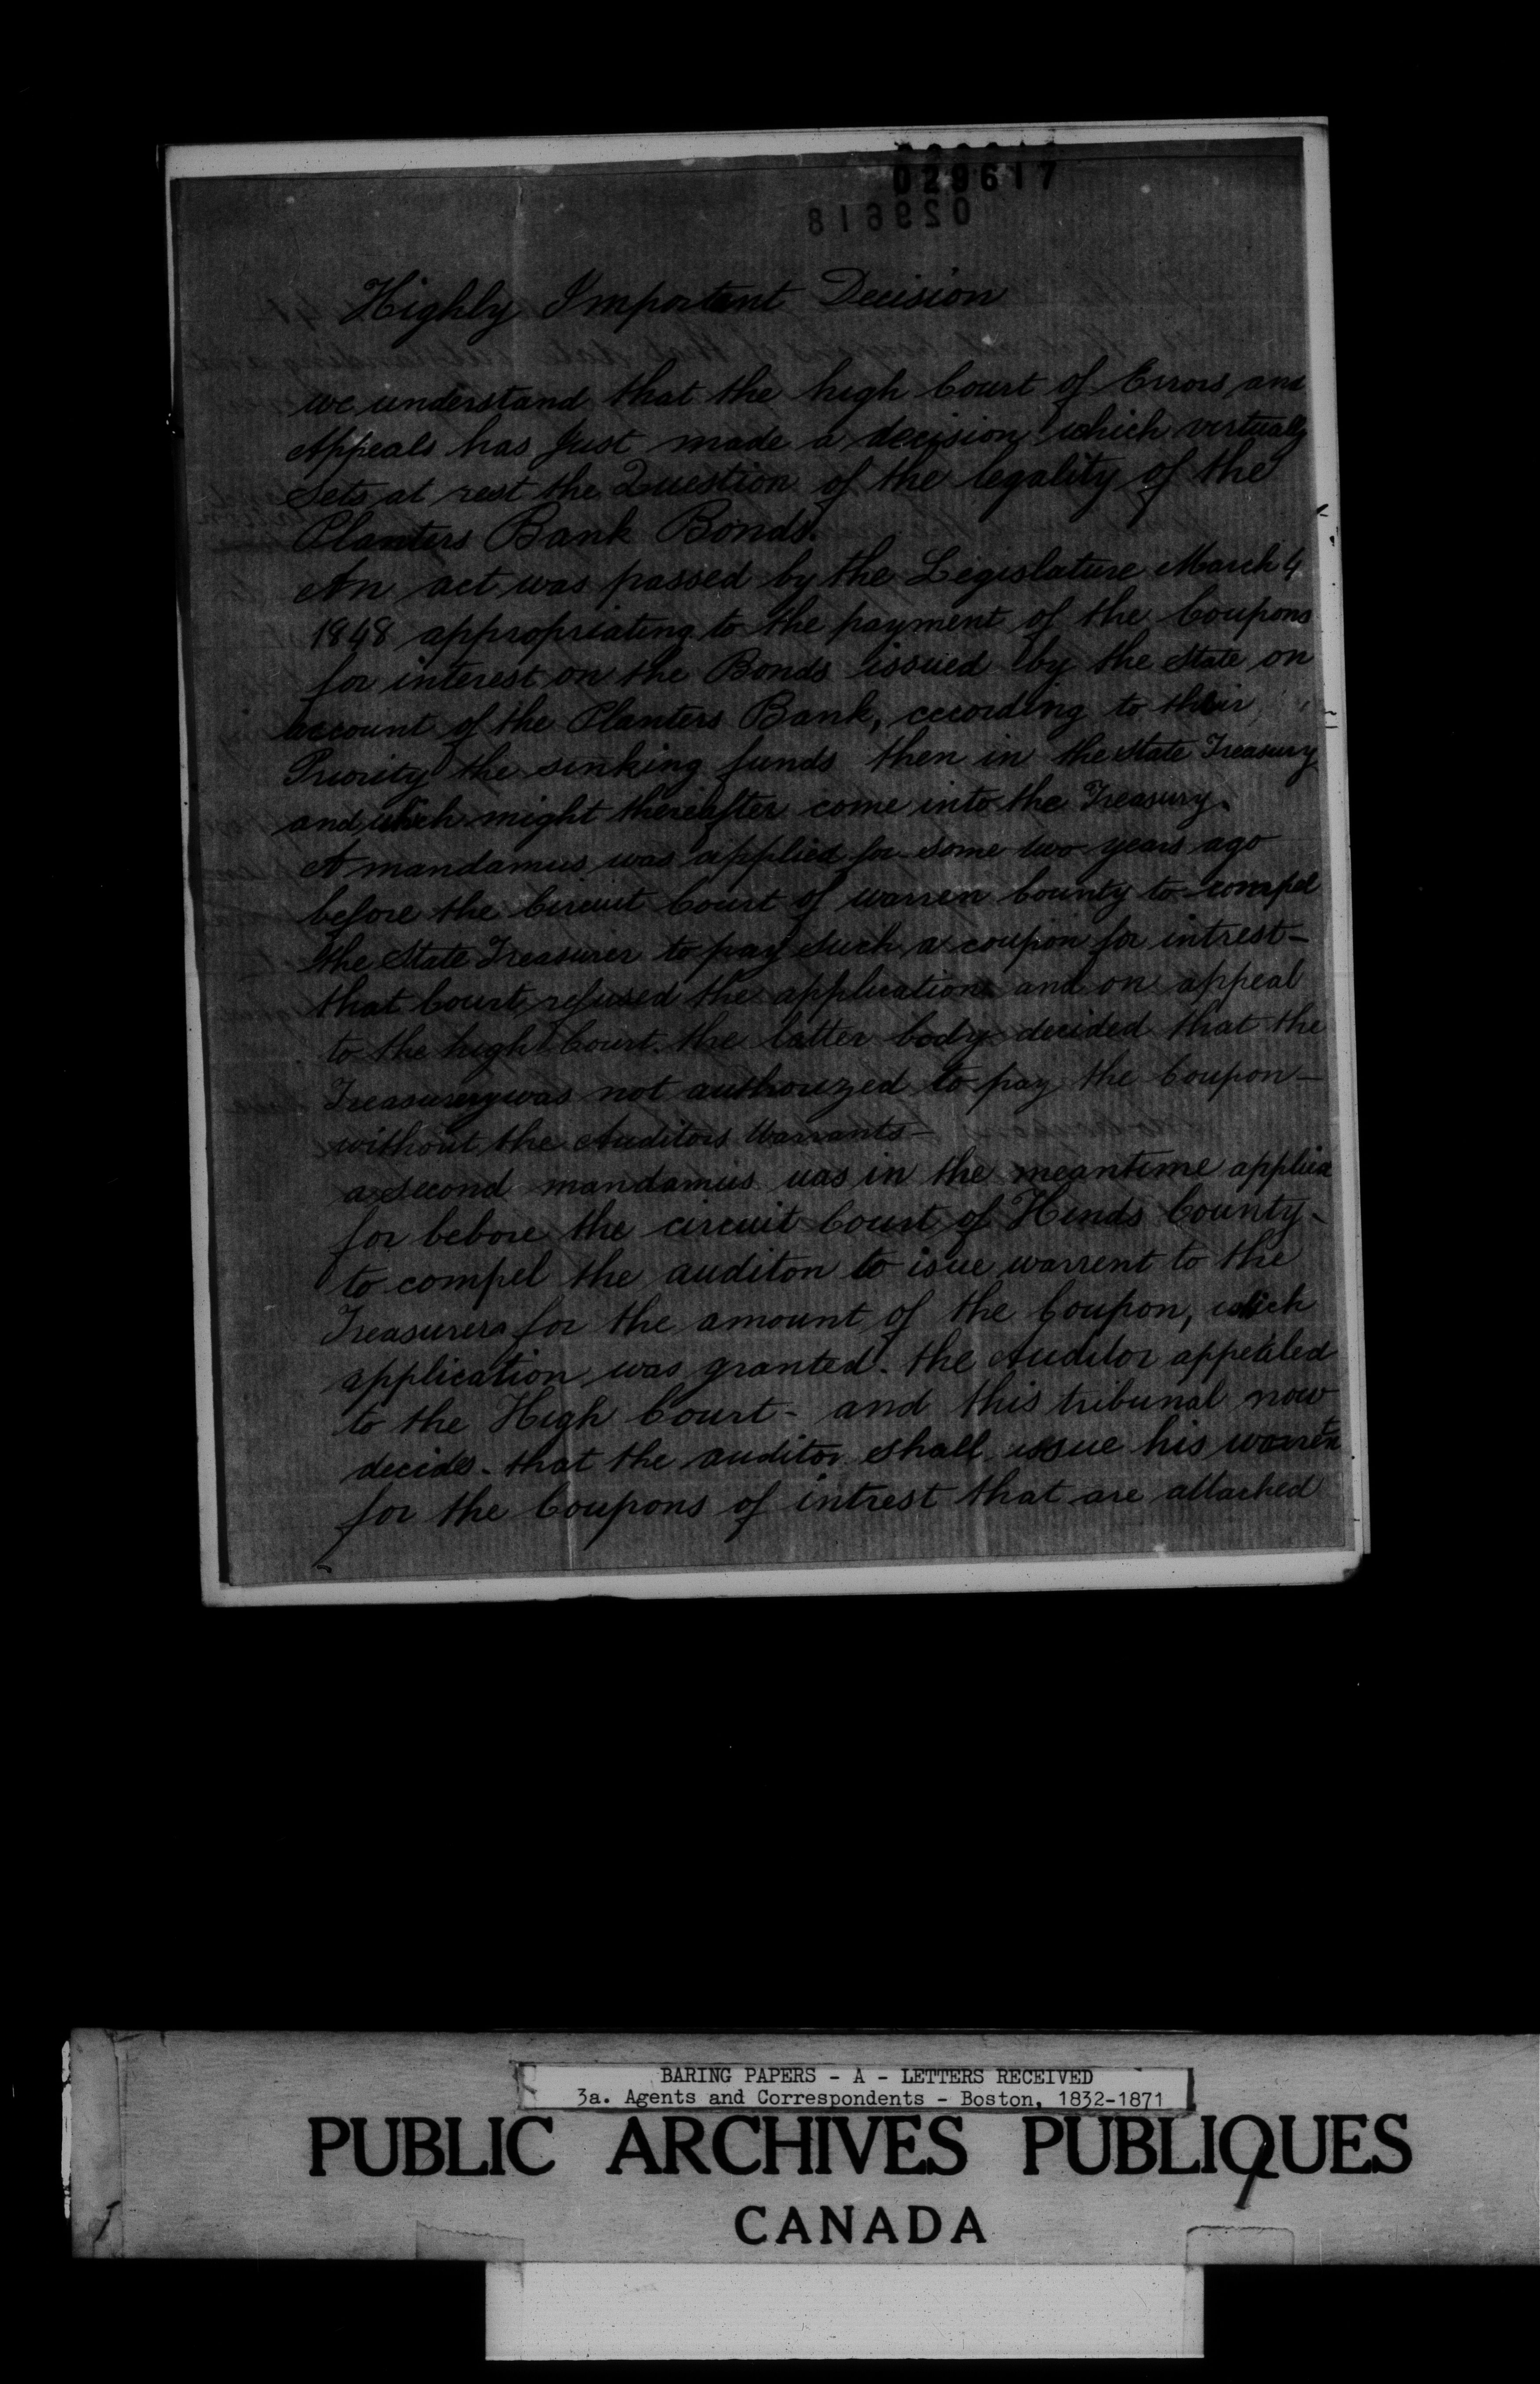 029617
029618
Highly Important Decision
we understand that the high Court of Errors and
Appeals has Just made a decision which virtually
sets at rest the Question of the legality of the
Planters Bank Bonds.
An act was passed by the Legislature March 4
1848 appropriating to the payment of the Coupons
for interest on the Bonds issued by the State on
account of the Planters Bank, ccording to their
Priority the sinking funds then in the State Treasury
and which might thereafter come into the Treasury.
A mandamus was applied for some two years ago
before the Circuit Court of Warren County to compel
the State Treasurer to pay such a coupon for intrest-
that Court refused the application and on appeal
to the high Court. the latter body decided that the
Treasurery was not authourized to pay the Coupon-
without the Auditors Warrants-
a second mandamus uas in the meantime applied
for bebore the circuit Court of Hinds County-
to compel the auditon to isue warrent to the
Treasurers for the amount of the Coupon, which
application was granted. the Auditor appealed
to the High Court- and this tribunal now
decides- that the auditor shall issue his warrent
for the Coupons of intrest that are attached
BARING PAPERS - A - LETTERS RECEIVED
3a. Agents and Correspondents - Boston, 1832-1871
PUBLIC ARCHIVES PUBLIQUES
CANADA